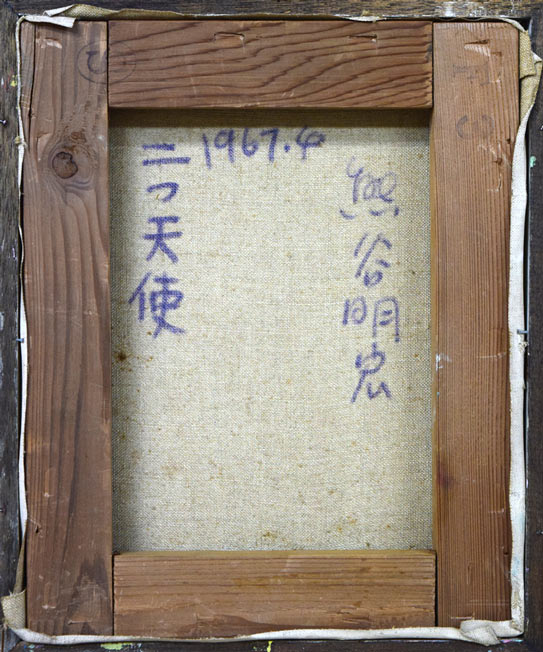 1967.4
熊谷明忠
二つ天使